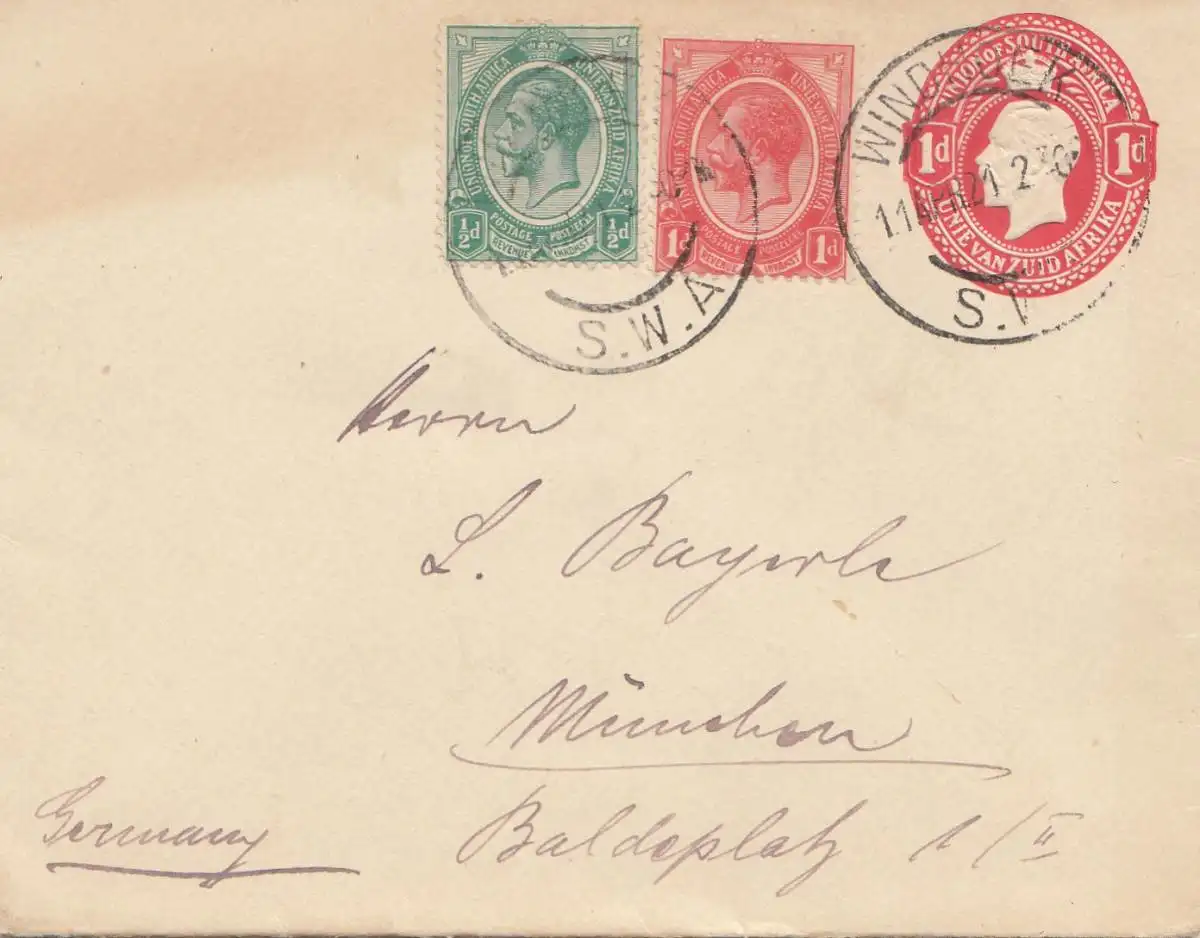 UNION OF SOUTH AFRICA UNIE VAN ZUID AFRIKA
½d POSTAGE POSTZEGEL ½d
REVENUE INKOMST
UNION OF SOUTH AFRICA UNIE VAN ZUID AFRIKA
1d POSTAGE POSTZEGEL 1d
REVENUE INKOMST
S.W.A
UNION OF SOUTH AFRICA
1d 1d
UNIE VAN ZUID AFRIKA
WINDHUK
11APR21 2 30
S.
Herrn
L. Bayerle
München
Baldeplatz 1/II
Germany